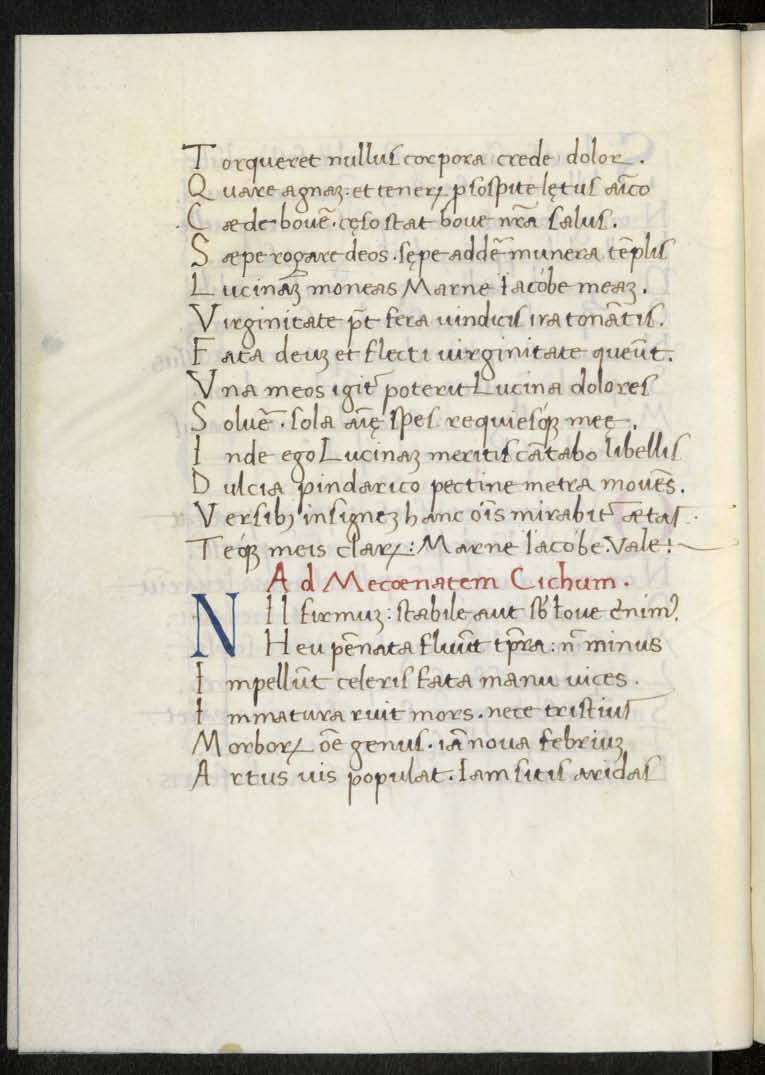 Torqueret nulluſ corpora crede dolor.
Quare agnaꝫ: et teneꝝ ꝓſoſpite lętuſ aı̄co
Cæde bouē. cęſo ſtat boue nr̄a ſaluſ.
Sæpe rogare deos. ſępe addē munera tēpliſ
Lucinā moneas Marne Iacóbe meaꝫ.
Virginitate pn̄t fera uindiciſ ira tonātiſ.
Fata deuꝫ et flecti uirginitate queūt.
Vna meos igit᷑ poterit Lucina doloreſ
Soluē. ſola aı̄ę ſpeſ requieſqꝫ meę.
Inde ego Lucinaꝫ meritiſ cātabo libelliſ
Dulcia pindarico pectine metra mouēs.
Verſibꝫ inſigneꝫ hanc oı̄s mirabit᷑ ætaſ.
Teqꝫ meis claꝝ: Marne Iacobe: Vale:
Ad Mecœnatem Cichum.
NIl firmuꝫ: ſtabile aut ſb̓ Ioue
Heu pēnata fluūt tp̄ra: n̄ minus
Impellūt celeriſ fata manu uices.
Immatura ruit mors. nece triſtiuſ
Morboꝝ oē genuſ. iā noua febriuꝫ
Artus uis populat. Iam ſitiſ aridaſ